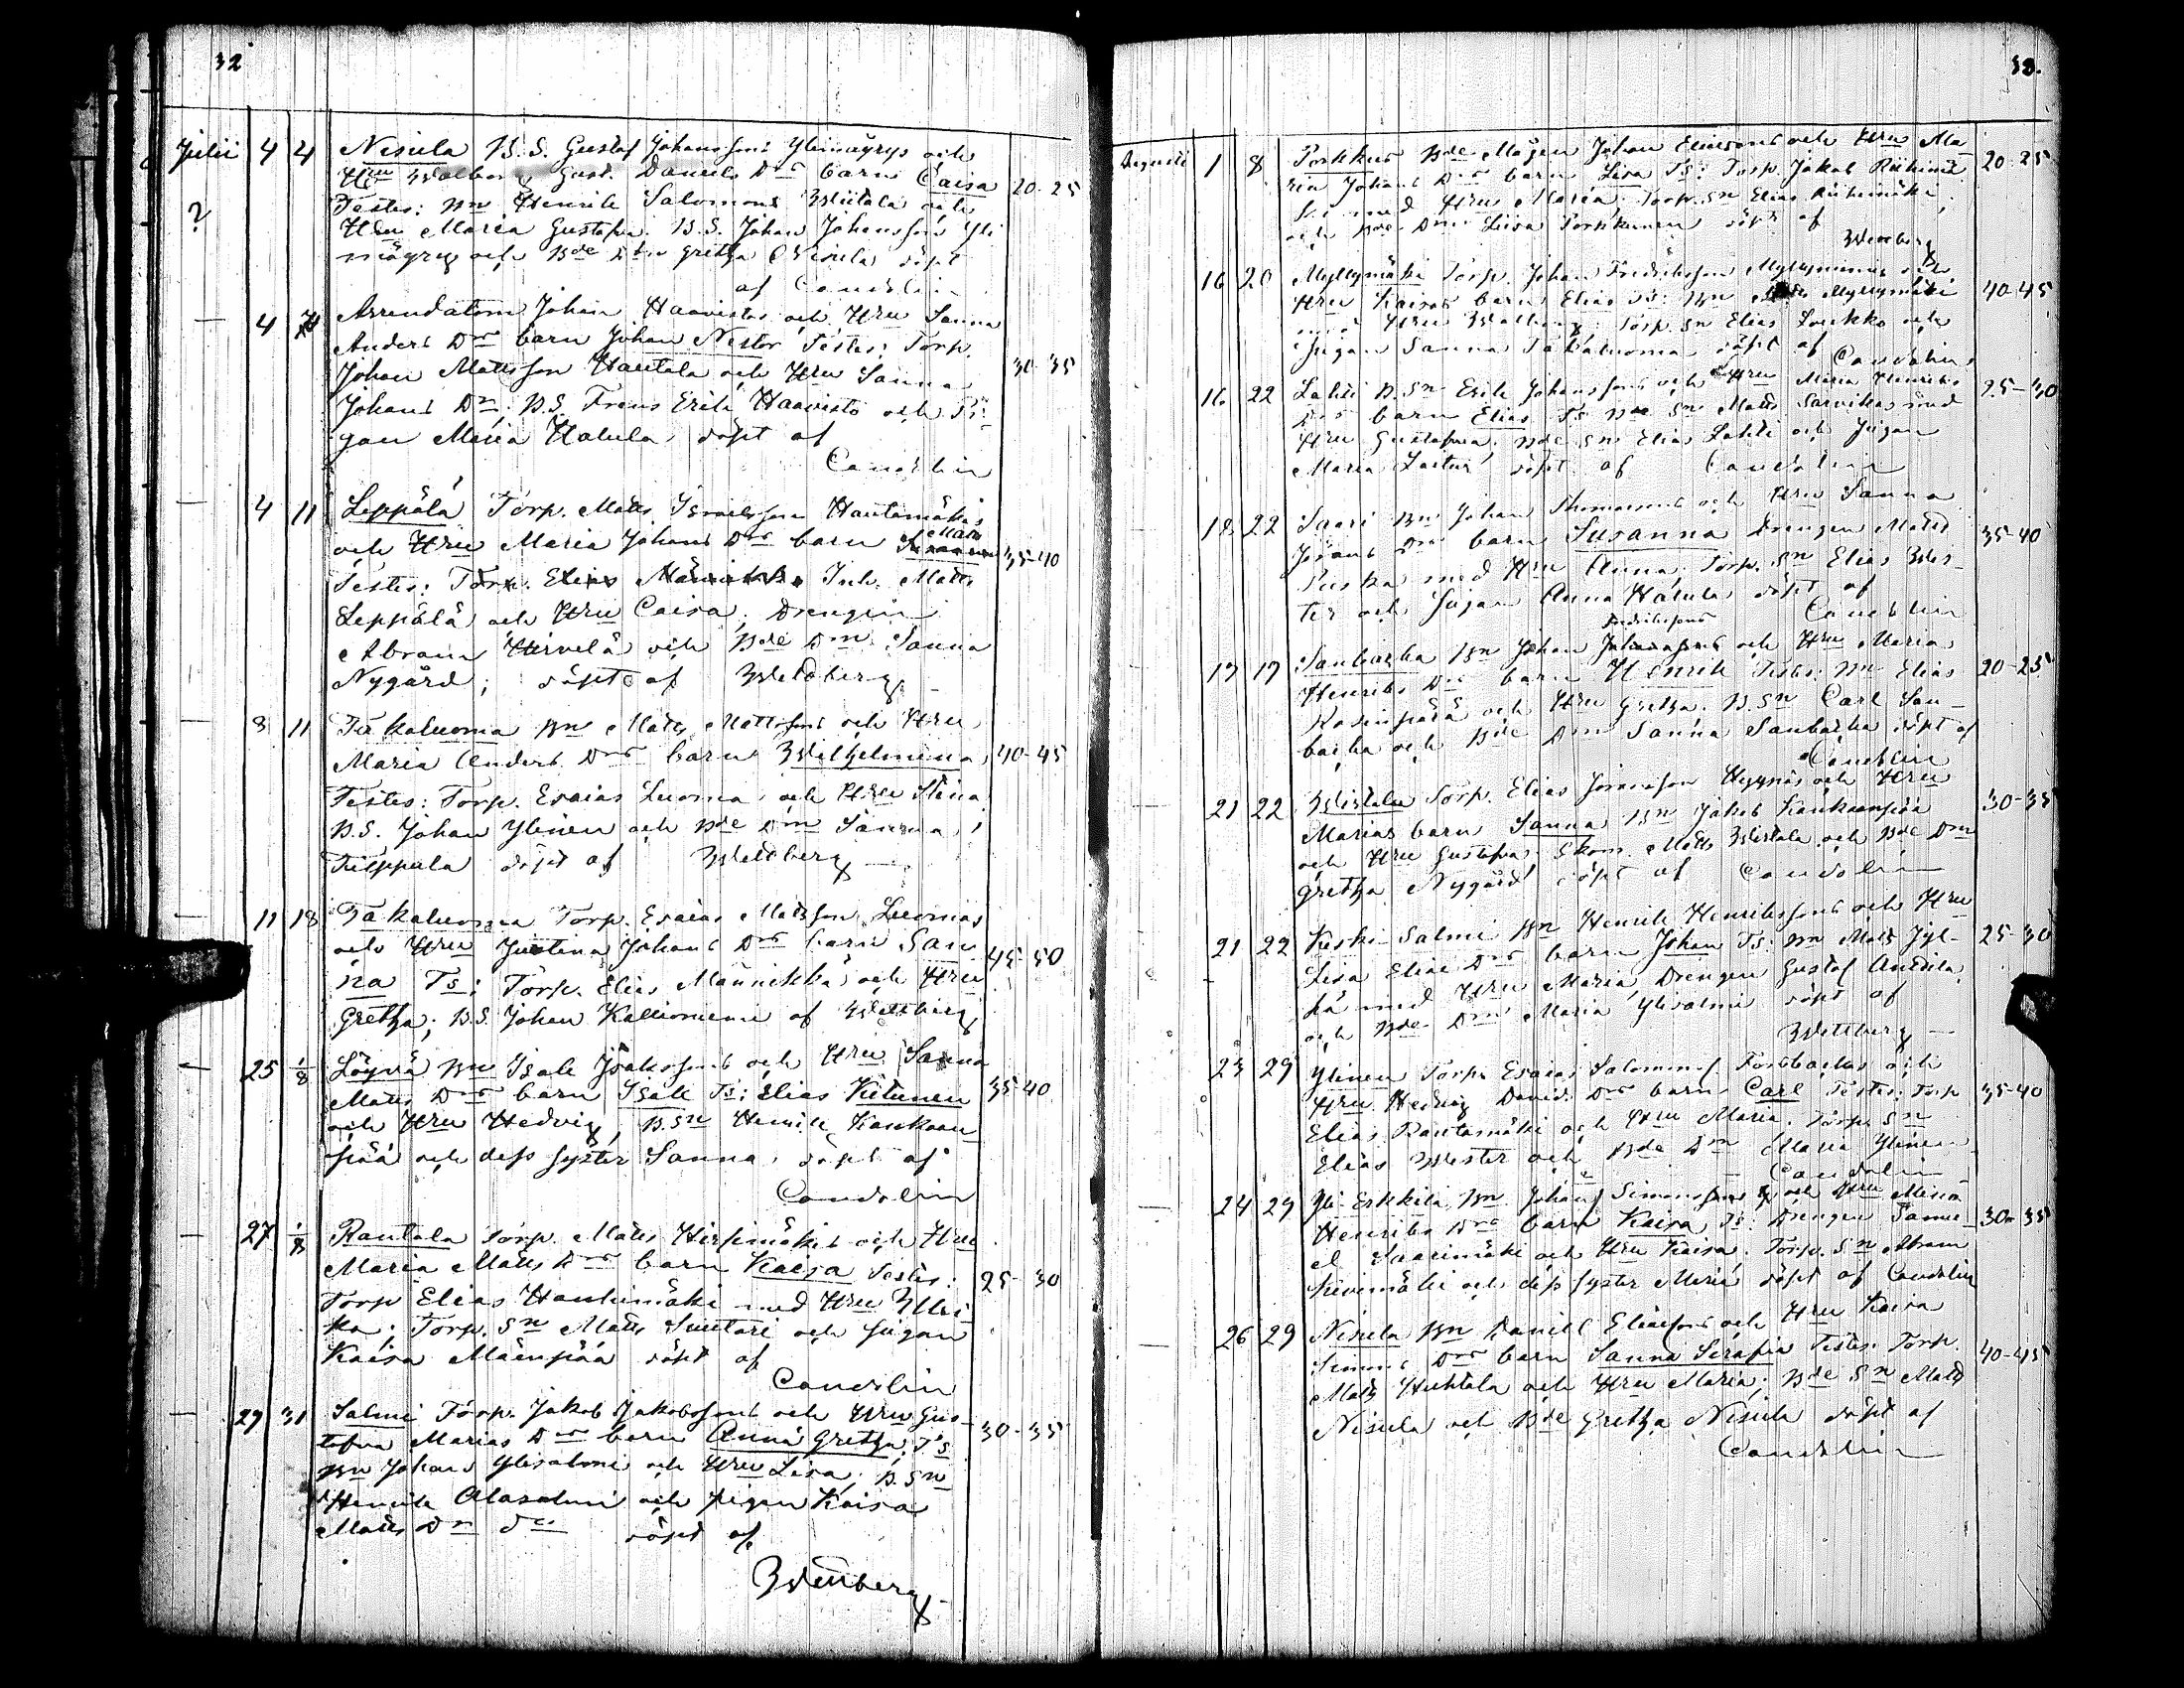 32
Julii 4 4 Nisula B.S. Gustaf Johanssons Ylimäyrys och
Hru Walborg Gust. Daniels Drs barn Caisa 20-25
? Testes: Bn Henrik Salomons Wiitala och
Hru Maria Gustafva. B.S. Johan Johansson Yli
mäyry och Bde Dtr Gretha Nisula döpt
af Candelin
4 Arrendatorn Johan Haavistos och Hru Sanna
Anders Drs barn Johan Nestor Testes: Torp.
Johan Mattsson Hautala och Hru Sanna 30-35
Johans Dr; B.S. Frans Erik Haavisto och Pi
gan Maria Hakula döpt af
Candelin
4 11 Leppälä Torp. Matts Israelsson Hautamäkis
och Hru Maria Johans Drs barn Matts 35-40
Testes: Torp. Elias Männikkö Inh. Matts
Leppälä och Hru Caisa, Drengen
Abram Hirvelä och Bde Dn Sanna
Nygård; döpt af Wettberg
8 11 Takaluoma Bn Matts Mattssons och Hru
Maria Anders Drs barn Wilhelmina 40-45
Testes: Torp. Esaias Luoma och Hru Stina
B.S. Johan Ylinen och Bde Dn Sanna
Tulppala döpt af Wettberg
11 18 Takaluoma Torp. Esaias Mattsson Luomas
och Hru Justina Johans Drs barn San 45-50
na Ts: Torp. Elias Männikkö och Hru
Gretha; B.S. Johan Kallioniemi af Wettberg
25 1/8 Löyvä Bn Isak Isakssons och Hru Sanna
Matts Drs barn Isak Ts: Elias Kitunen 35-40
och Hru Hedvig, B.Sn Henrik Kankaan
pää och dess syster Sanna, döpt af
Candelin
27 1/8 Rantala Torp. Matts Hirsimäkis och Hru
Maria Matts Drs barn Kaisa Testes: 25-30
Torp Elias Hautamäki med Hru Ulri
ka; Torp. Sn Matts Suutari och pigan
Kaisa Mäenpää döpt af
Candelin
29 31 Salmi Torp. Jakob Jakobssons och Hru Gus- 30-35
tafva Marias Drs barn Anna Gretha, Ts
Bn Johan Ylisalmi och Hru Lisa; B.Sn
Henrik Alasalmi och pigan Kaisa
Matts Dn do döpt af
Wettberg
33.
Augusti 1 8 Porkkus Bde Mågen Johan Eliassons och Hru Ma- 20-25
ria Johans Drs barn Lisa Ts: Torp. Jakob Riihimä
ki med Hru Maria; Torp. Sn Elias Riihimäki,
och Bde Dn Liisa Porkkunen döpt af
Wettberg
16 20 Myllymäki Torp. Johan Fredriksson Myllyniemis och
Hru Kaisas barn Elias Ts: Bn Myllymäki 40-45
med Hru Walborg; Torp. Sn Elias Loukko och
pigan Sanna Takaluoma döpt af Candelin
16 22 Lahti B.Sn Erik Johanssons och Hru Maria Henriks 25-30
Drs barn Elias Ts Bde Sn Matts Sarvikas med
Hru Gustafva; Bde Sn Elias Lahti och pigan
Maria Laitur döpt af Candelin
18 22 Saari Bn Johan Thomassons och Hru Sanna
Johans Drs barn Susanna Drengen Matts 35-40
Puska med Hru Anna. Torp. Sn Elias Wes-
ter och pigan Anna Hakula döpt af
Candelin
Fredrikssons
17 17 Sanbacka Bn Johan och Hru Maria
Henriks Drs barn Henrik Testes: Bn Elias 20-25
Kosenpää och Hru Gretha. B.Sn Carl San-
backa och Bde Dn Sanna Sanbacka döpt af
Candelin
21 22 Wistala Torp. Elias Hyynäs och Hru
Marias barn Sanna Bn Jakob Kankaanpää 30-35
och Hru Gustafva. Skom. Matts Wistala och Bde Dn
Gretha Nygård döpt af Candelin
21 22 Keski-Salmi Bn Henrik Henrikssons och Hru
Lisa Elias Drs barn Johan Ts: Bn Matts Jyl- 25-30
hä med Hru Maria, Drengen Gustaf Anttila
och Bde Dn Maria Ylisalmi döpt af
Wettberg
23 29 Ylinen Torp. Esaias Salomons Forsbackas och
Hru Hedvig Davids Drs barn Carl Testes: Torp 35-40
Elias Rantamäki och Hru Maria. Torp. Sn
Elias Wester och Bde Dn Maria Ylinen
Candelin
24 29 Yli-Erkkilä Bn Johan Simonssons och Hru Maria
Henriks Drs barn Kaisa Ts: Drengen Samu- 30-35
el Saarimäki och Hru Kaisa. Torp. Sn Abram
Kivimäki och dess syster Maria döpt af Candelin
26 29 Nisula Bn Daniel Eliassons och Hru Kaisa
Simons Drs barn Sanna Serafia Testes: Torp. 40-45
Matts Huhtala och Hru Maria; Bde Sn Matts
Nisula och Bde Gretha Nisula döpt af
Candelin